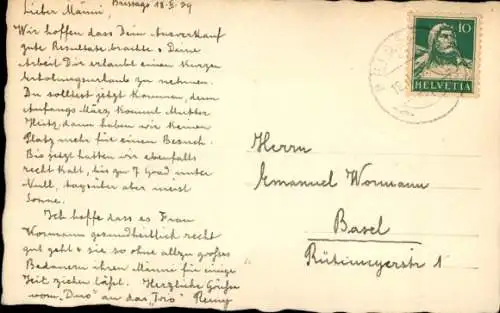 Brissago 18.II.29
Lieber Männi,
Wir hoffen dass Dein Ausverkauf
gute Resultate brachte & Deine
Arbeit Dir erlaubt einen kurzen
Erholungsurlaub zu nehmen.
Du solltest jetzt kommen, denn
Anfangs März kommt Mutter
Hintz, dann haben wir keinen
Platz mehr für einen Besuch.
Bis jetzt hatten wir ebenfalls
recht kalt, bis zu 7 Grad unter
Null, tagsüber aber meist
Sonne.
Ich hoffe dass es Frau
Wormann gesundheitlich recht
gut geht & sie so ohne allzu grosses
Bedauern ihren Männi für einige
Zeit ziehen lässt. Herzliche Grüsse
vom "Duo" an das "Trio"
10
HELVETIA
Herrn
Emanuel Wormann
Basel
Rütimeyerstr 1